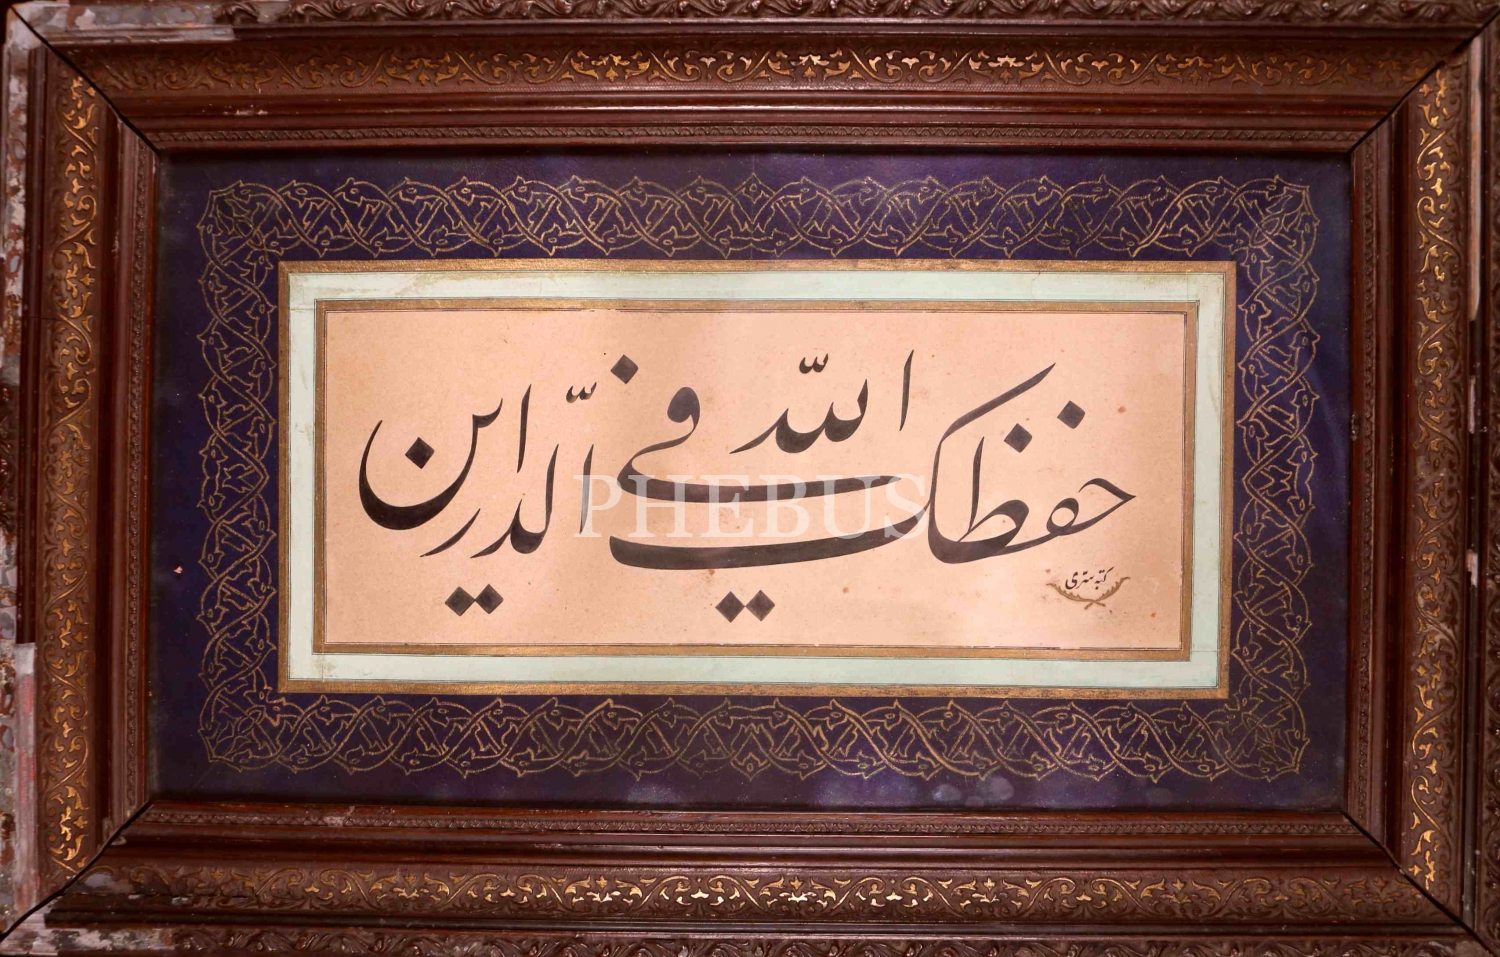 حفظك الله في الدّارين
كتبه سرّي
PHEBUS